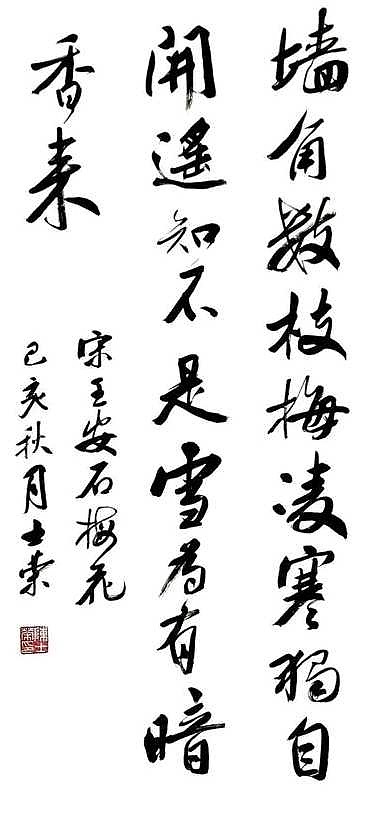 墙角数枝梅凌寒独自
開遥知不是雪为有暗
香来
宋王安石梅花
己亥秋月士荣
陳士
榮印